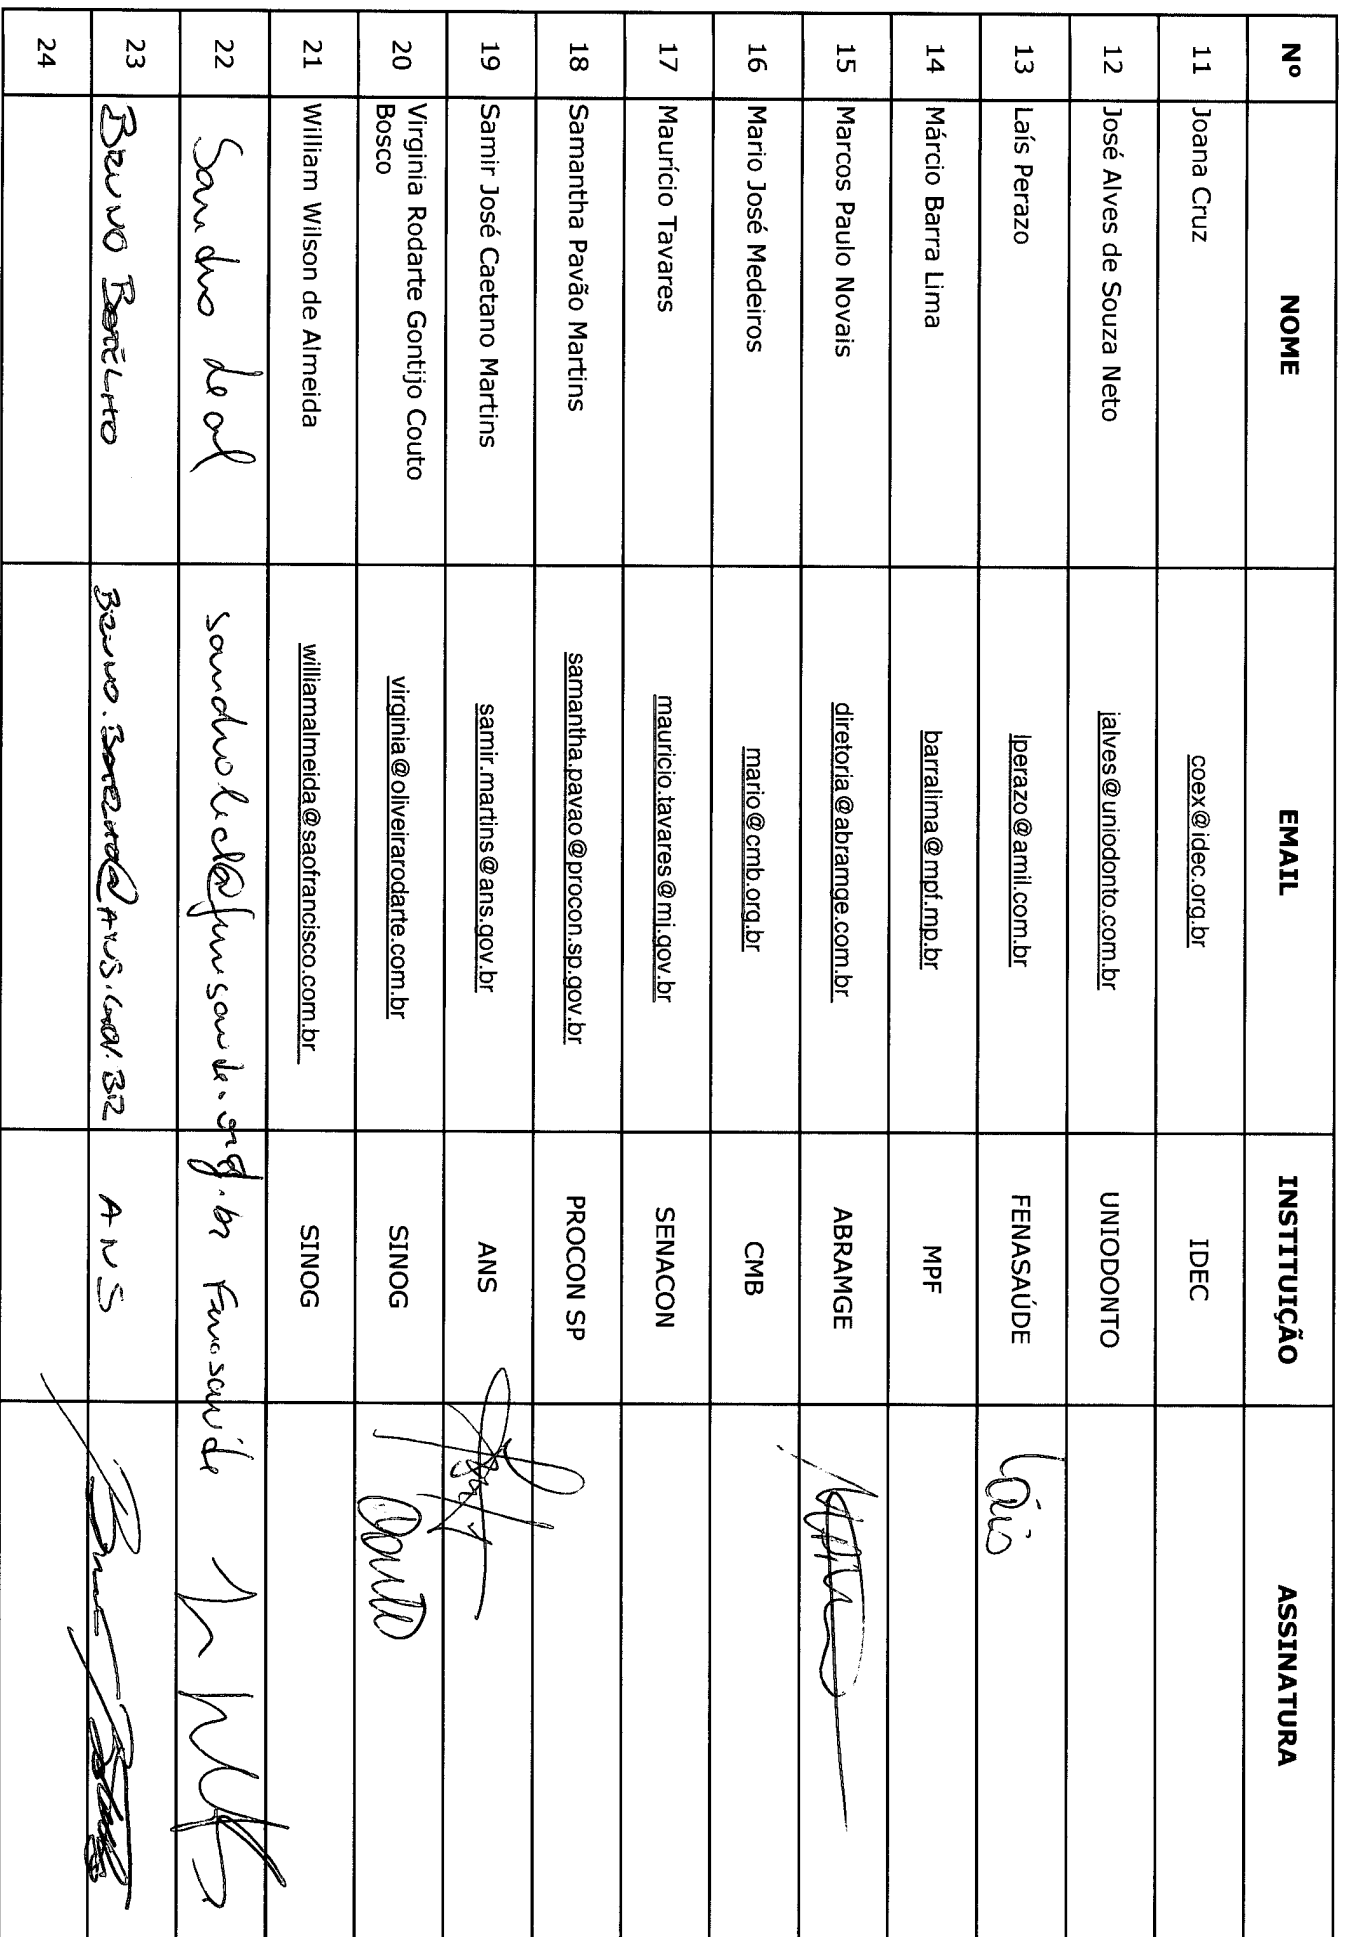 Nº NOME EMAIL INSTITUIÇÃO ASSINATURA
11 Joana Cruz coex@idec.org.br IDEC
12 José Alves de Souza Neto jalves@uniodonto.com.br UNIODONTO
13 Laís Perazo lperazo@amil.com.br FENASAÚDE Laís
14 Márcio Barra Lima barralima@mpf.mp.br MPF
15 Marcos Paulo Novais diretoria@abramge.com.br ABRAMGE
16 Mario José Medeiros mario@cmb.org.br CMB
17 Maurício Tavares mauricio.tavares@mj.gov.br SENACON
18 Samantha Pavão Martins samantha.pavao@procon.sp.gov.br PROCON SP
19 Samir José Caetano Martins samir.martins@ans.gov.br ANS
20 Virginia Rodarte Gontijo Couto
Bosco virginia@oliveirarodarte.com.br SINOG
21 William Wilson de Almeida williamalmeida@saofrancisco.com.br SINOG
22 Sandro Leal Fenasaúde
23 BRUNO BOTELHO ANS
24